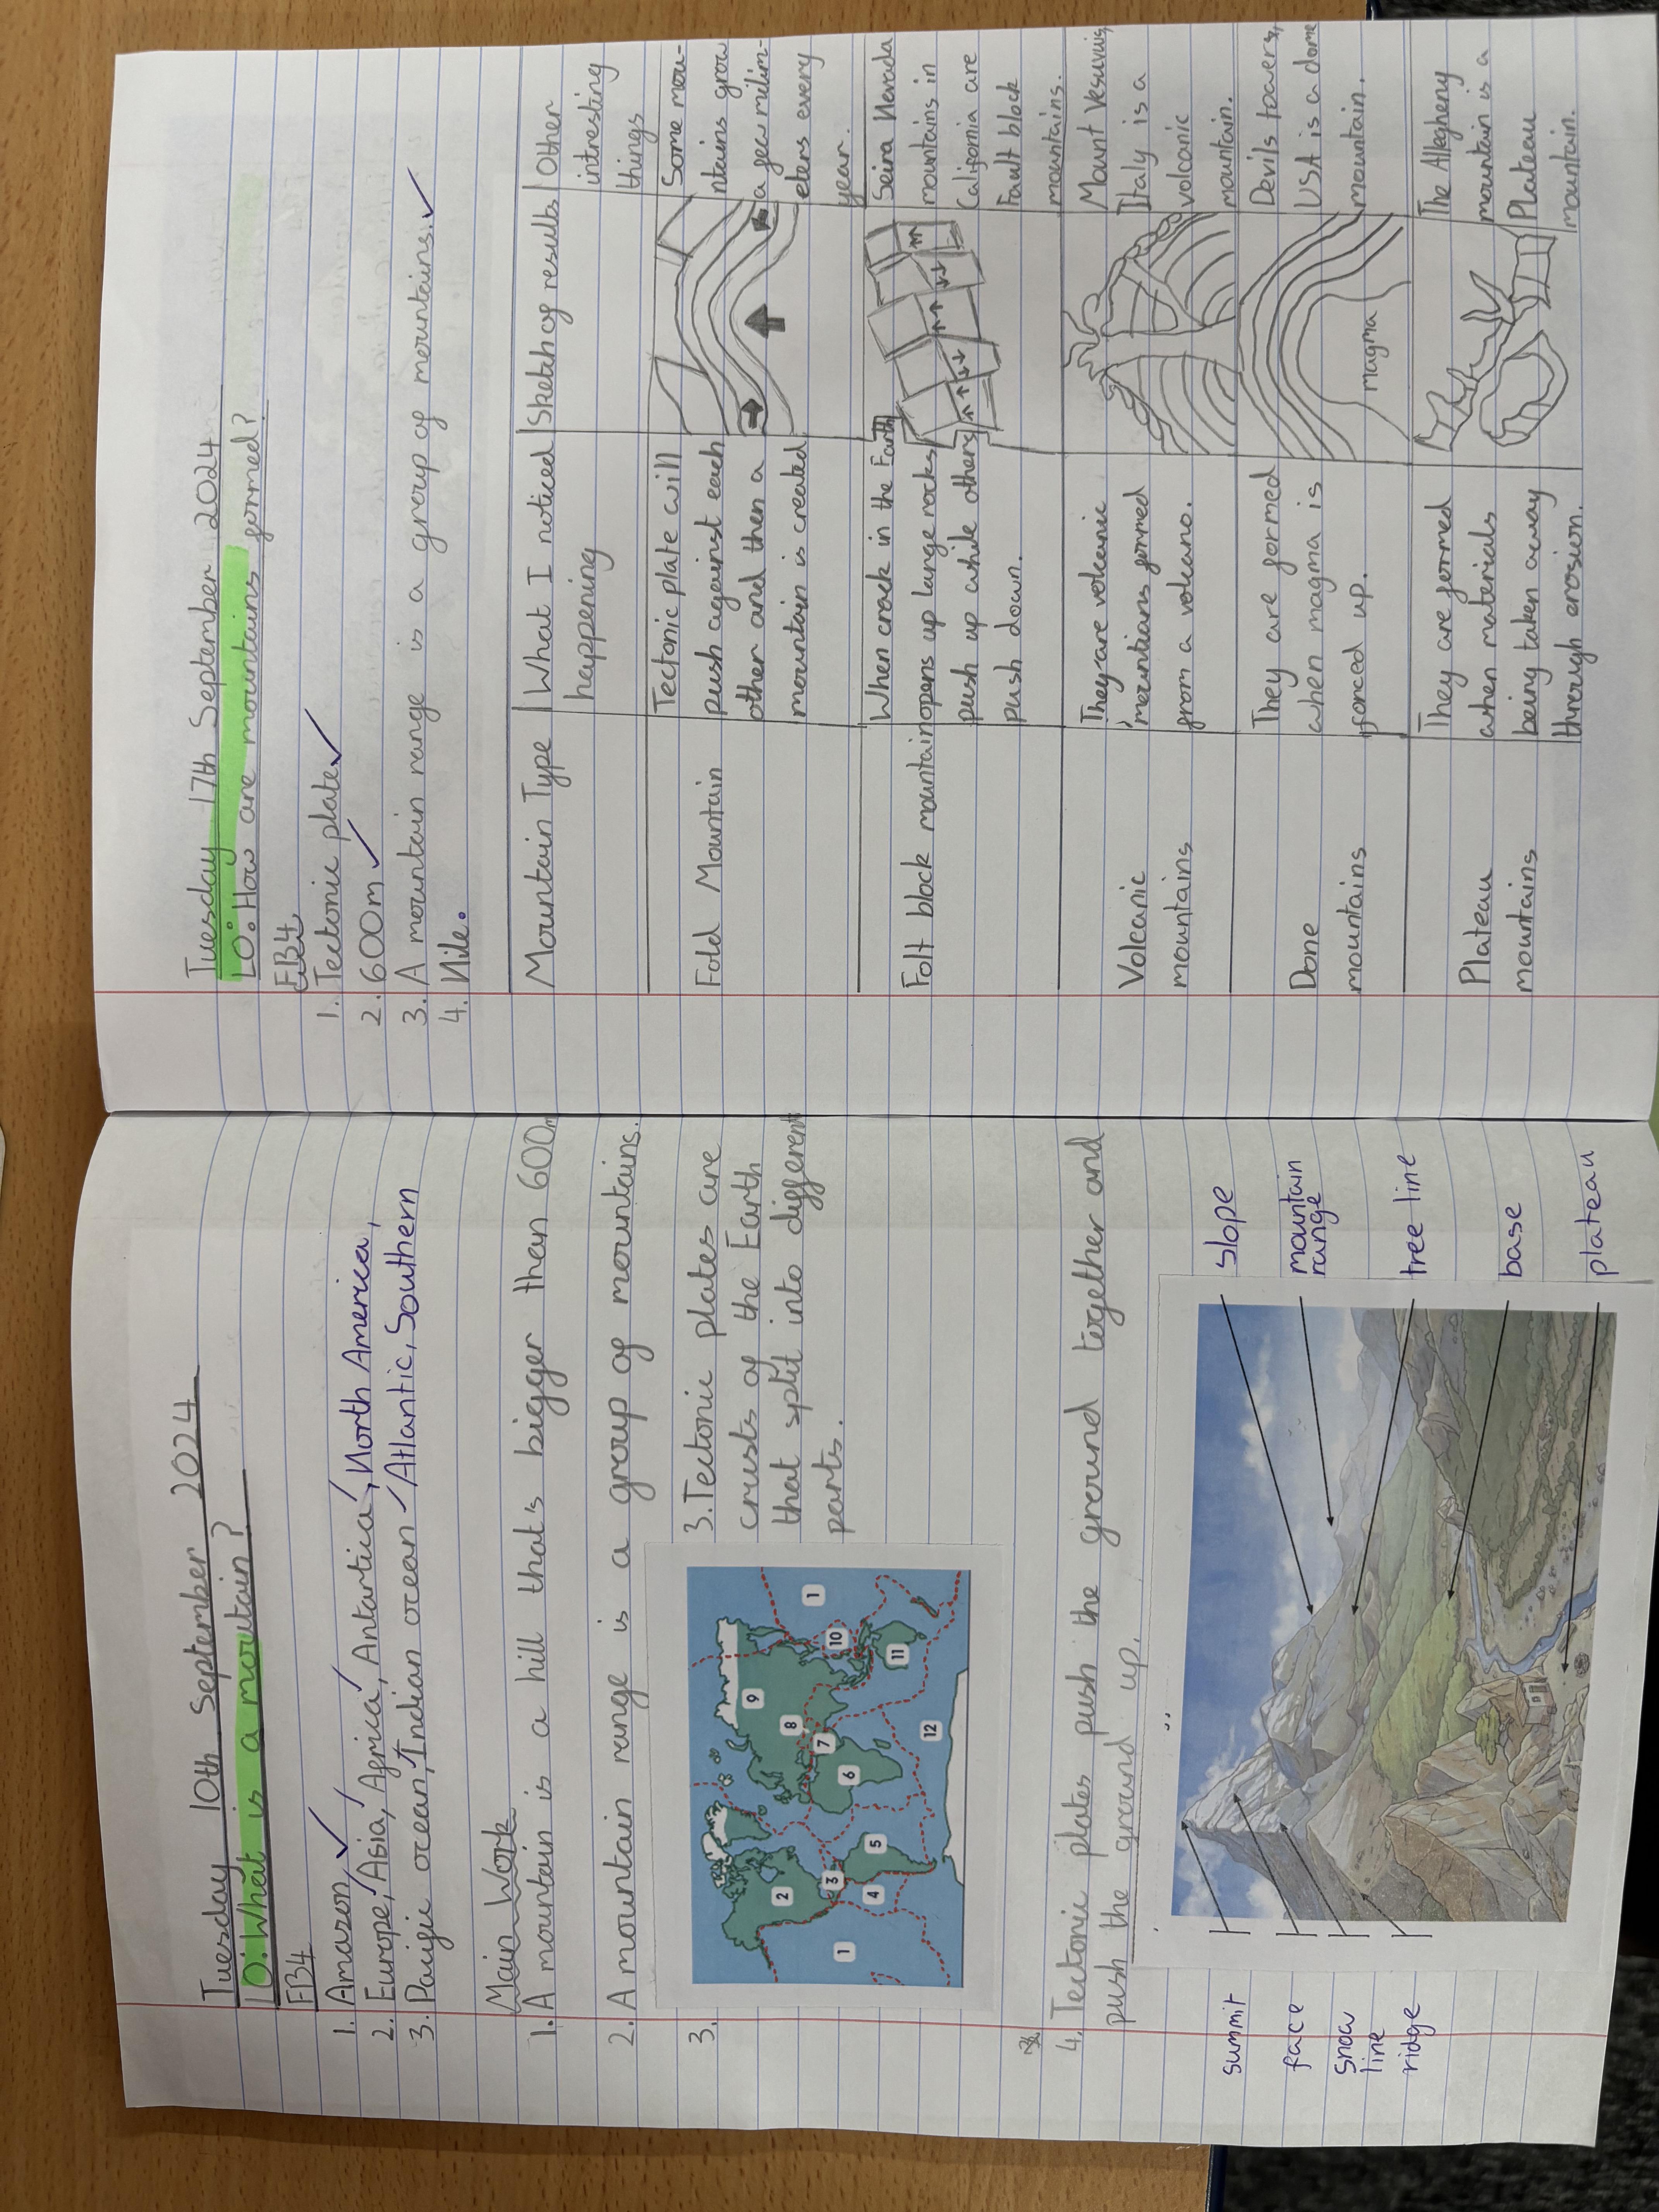 Tuesday 10th September 2024
LO: What is a moutain?
FB4
1. Amazon ✓
2. Europe, Asia, Africa, Antartica, North America,
3. Pacific ocean, Indian ocean Atlantic, Southern
Main Work
1. A mountain is a hill that's bigger than 600m
2. A mountain range is a group of mountains.
3.
1
2
3
4
5
6
7
8
9
10
11
12
1
3. Tectonic plates are
crusts of the Earth
that split into different
parts.
4. Tectonic plates push the ground together and
push the ground up.
summit
face
snow
line
ridge
slope
mountain
range
tree line
base
plateau
Tuesday 17th September 2024
LO: How are mountains formed?
FB4
1. Tectonic plate ✓
2. 600m ✓
3. A mountain range is a group of mountains. ✓
4. Nile.
Mountain Type
What I noticed
happening
Sketch of results
Other
intresting
things
Fold Mountain
Tectonic plate will
push against each
other and then a
mountain is created
Some mou-
ntains grow
a few milim-
eters every
year.
Folt block mountain
When crack in the Earth
opens up large rocks
push up while others
push down.
Seira Nevada
mountains in
California are
Fault block
mountains.
Volcanic
mountains
They are volcanic
mountians formed
from a volcano.
Mount Vesuvius,
Italy is a
volcanic
mountain.
Done
mountains
They are formed
when magma is
forced up.
magma
Devils towers,
USA is a dome
mountain.
Plateau
mountains
They are formed
when materials
being taken away
through erosion.
The Allegheny
mountain is a
Plateau
mountain.